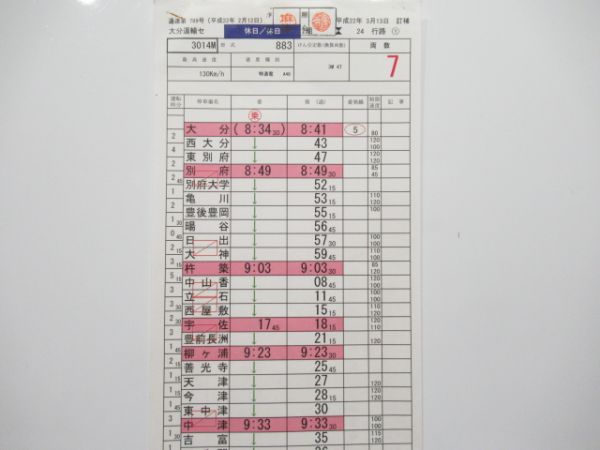 運運第 749号 (平成22年 2月12日) 平成22年 3月13日 訂補
大分運輸セ 休日/休日 組 24 行路 ①
3014M 形式 883 けん引定数(換算両数) 両数
最高速度 速度種別 3M 4T 7
130Km/h 特通電 A40
運転時分 停車場名 着 発(通) 着発線 制限速度 記事
乗
大分 (8:34 30) 8:41 5 80
2 西大分 ↓ 43 120 100
4 東別府 ↓ 47 120 120
2 別府 8:49 8:49 30 85 45
別府大学 ↓ 52 15
亀川 ↓ 53 15 110 120
2 豊後豊岡 ↓ 55 15 100
暘谷 ↓ 56 45
0 45 日出 ↓ 57 30 100
大神 ↓ 59 45 100 110
杵築 9:03 9:03 30 85 120
中山香 ↓ 08 45 120
立石 ↓ 11 45
西屋敷 ↓ 15 15
宇佐 17 45 18 15 120 110
豊前長洲 ↓ 21 15 120
柳ヶ浦 9:23 9:23 30
善光寺 ↓ 25 45
天津 ↓ 27 120
今津 ↓ 28 15 120
東中津 ↓ 30
3 中津 9:33 9:33 30 100 100
1 30 吉富 ↓ 35 115 120